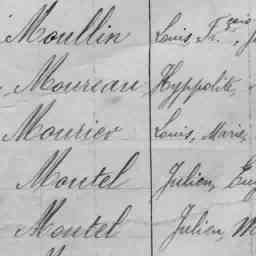 Moullin Louis, Fr.çois, J
Moureau Hyppolite,
Mourier Louis, Marie,
Moutel Julien, Eug
Moutel Julien, M